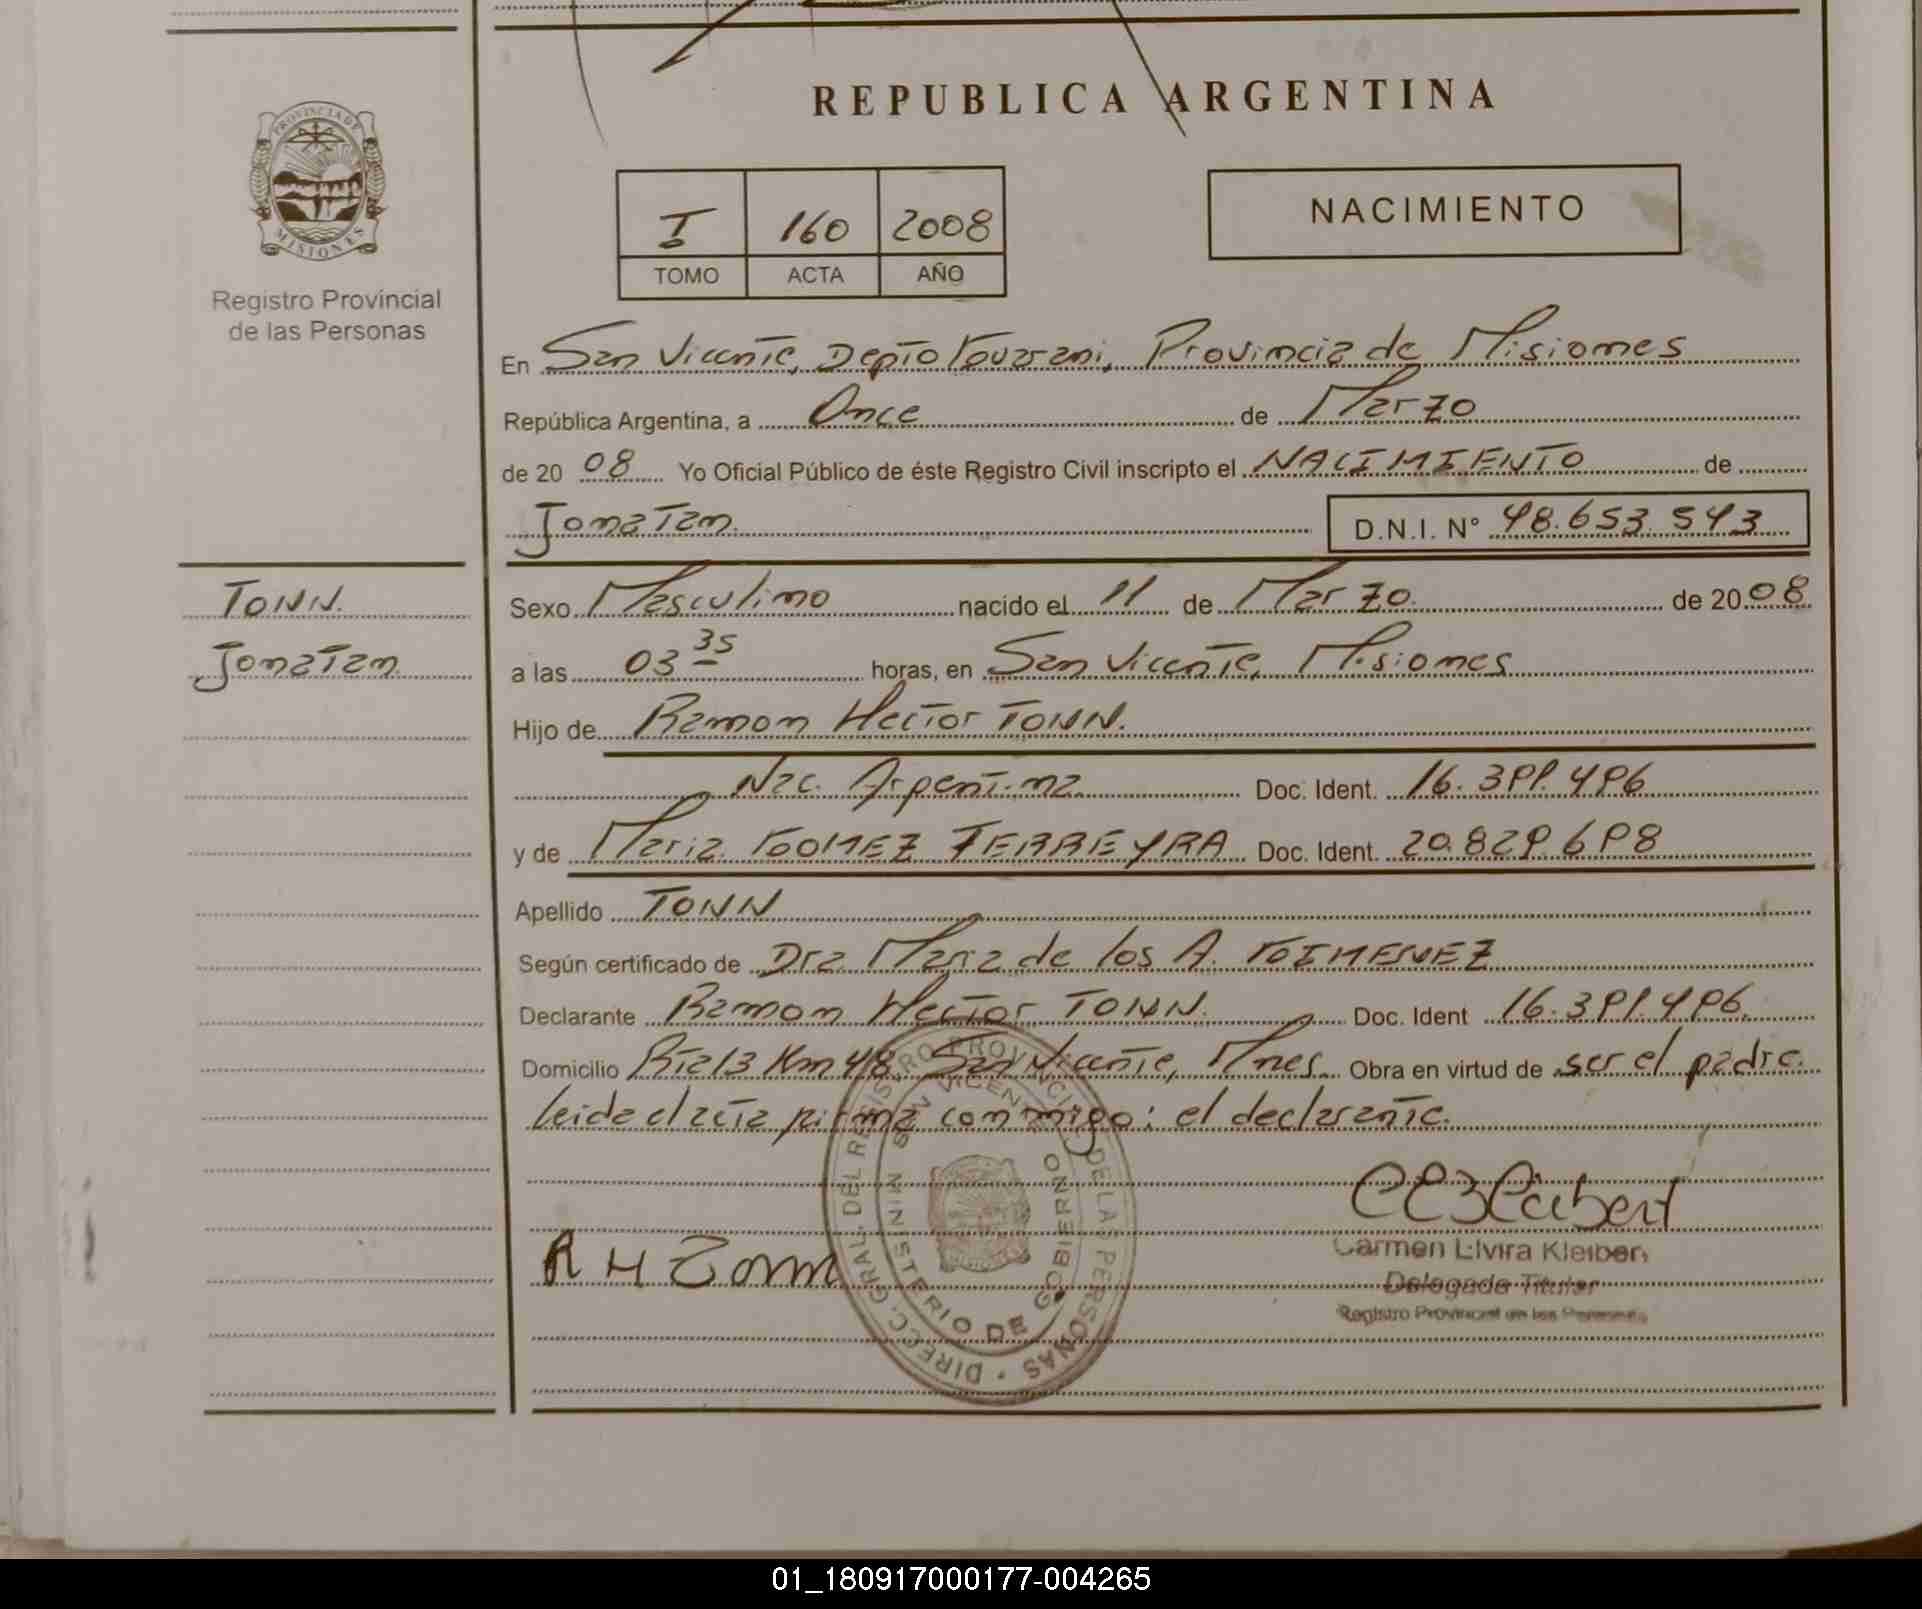 PROVINCIA DE
MISIONES
Registro Provincial
de las Personas
REPUBLICA ARGENTINA
I 160 2008
TOMO ACTA AÑO
NACIMIENTO
En San Vicente, Depto Guarani, Provincia de Misiones
República Argentina, a Once de Marzo
de 20 08 Yo Oficial Público de éste Registro Civil inscripto el NACIMIENTO de
Jonatan. D.N.I. N° 48.653.543
TONN.
Jonatan.
Sexo Masculino nacido el 11 de Marzo. de 20 08
a las 03 35 horas, en San Vicente, Misiones
Hijo de Ramon Hector TONN.
Nac. Argentina. Doc. Ident. 16.391.496
y de Maria GOMEZ FERREYRA Doc. Ident. 20.829.698
Apellido TONN
Según certificado de Dra. Maria de los A. GIMENEZ
Declarante Ramon Hector TONN. Doc. Ident 16.391.496.
Domicilio Rta 13 Km 48 San Vicente, Mnes. Obra en virtud de ser el padre.
Leida el acta firma conmigo: el declarante.
R H Tonn
Carmen Elvira Kleibert
Delegada Titular
Registro Provincial de las Personas
DIREC. GRAL. DEL REGISTRO PROVINCIAL DE LAS PERSONAS
SAN VICENTE
MINISTERIO DE GOBIERNO
01_180917000177-004265